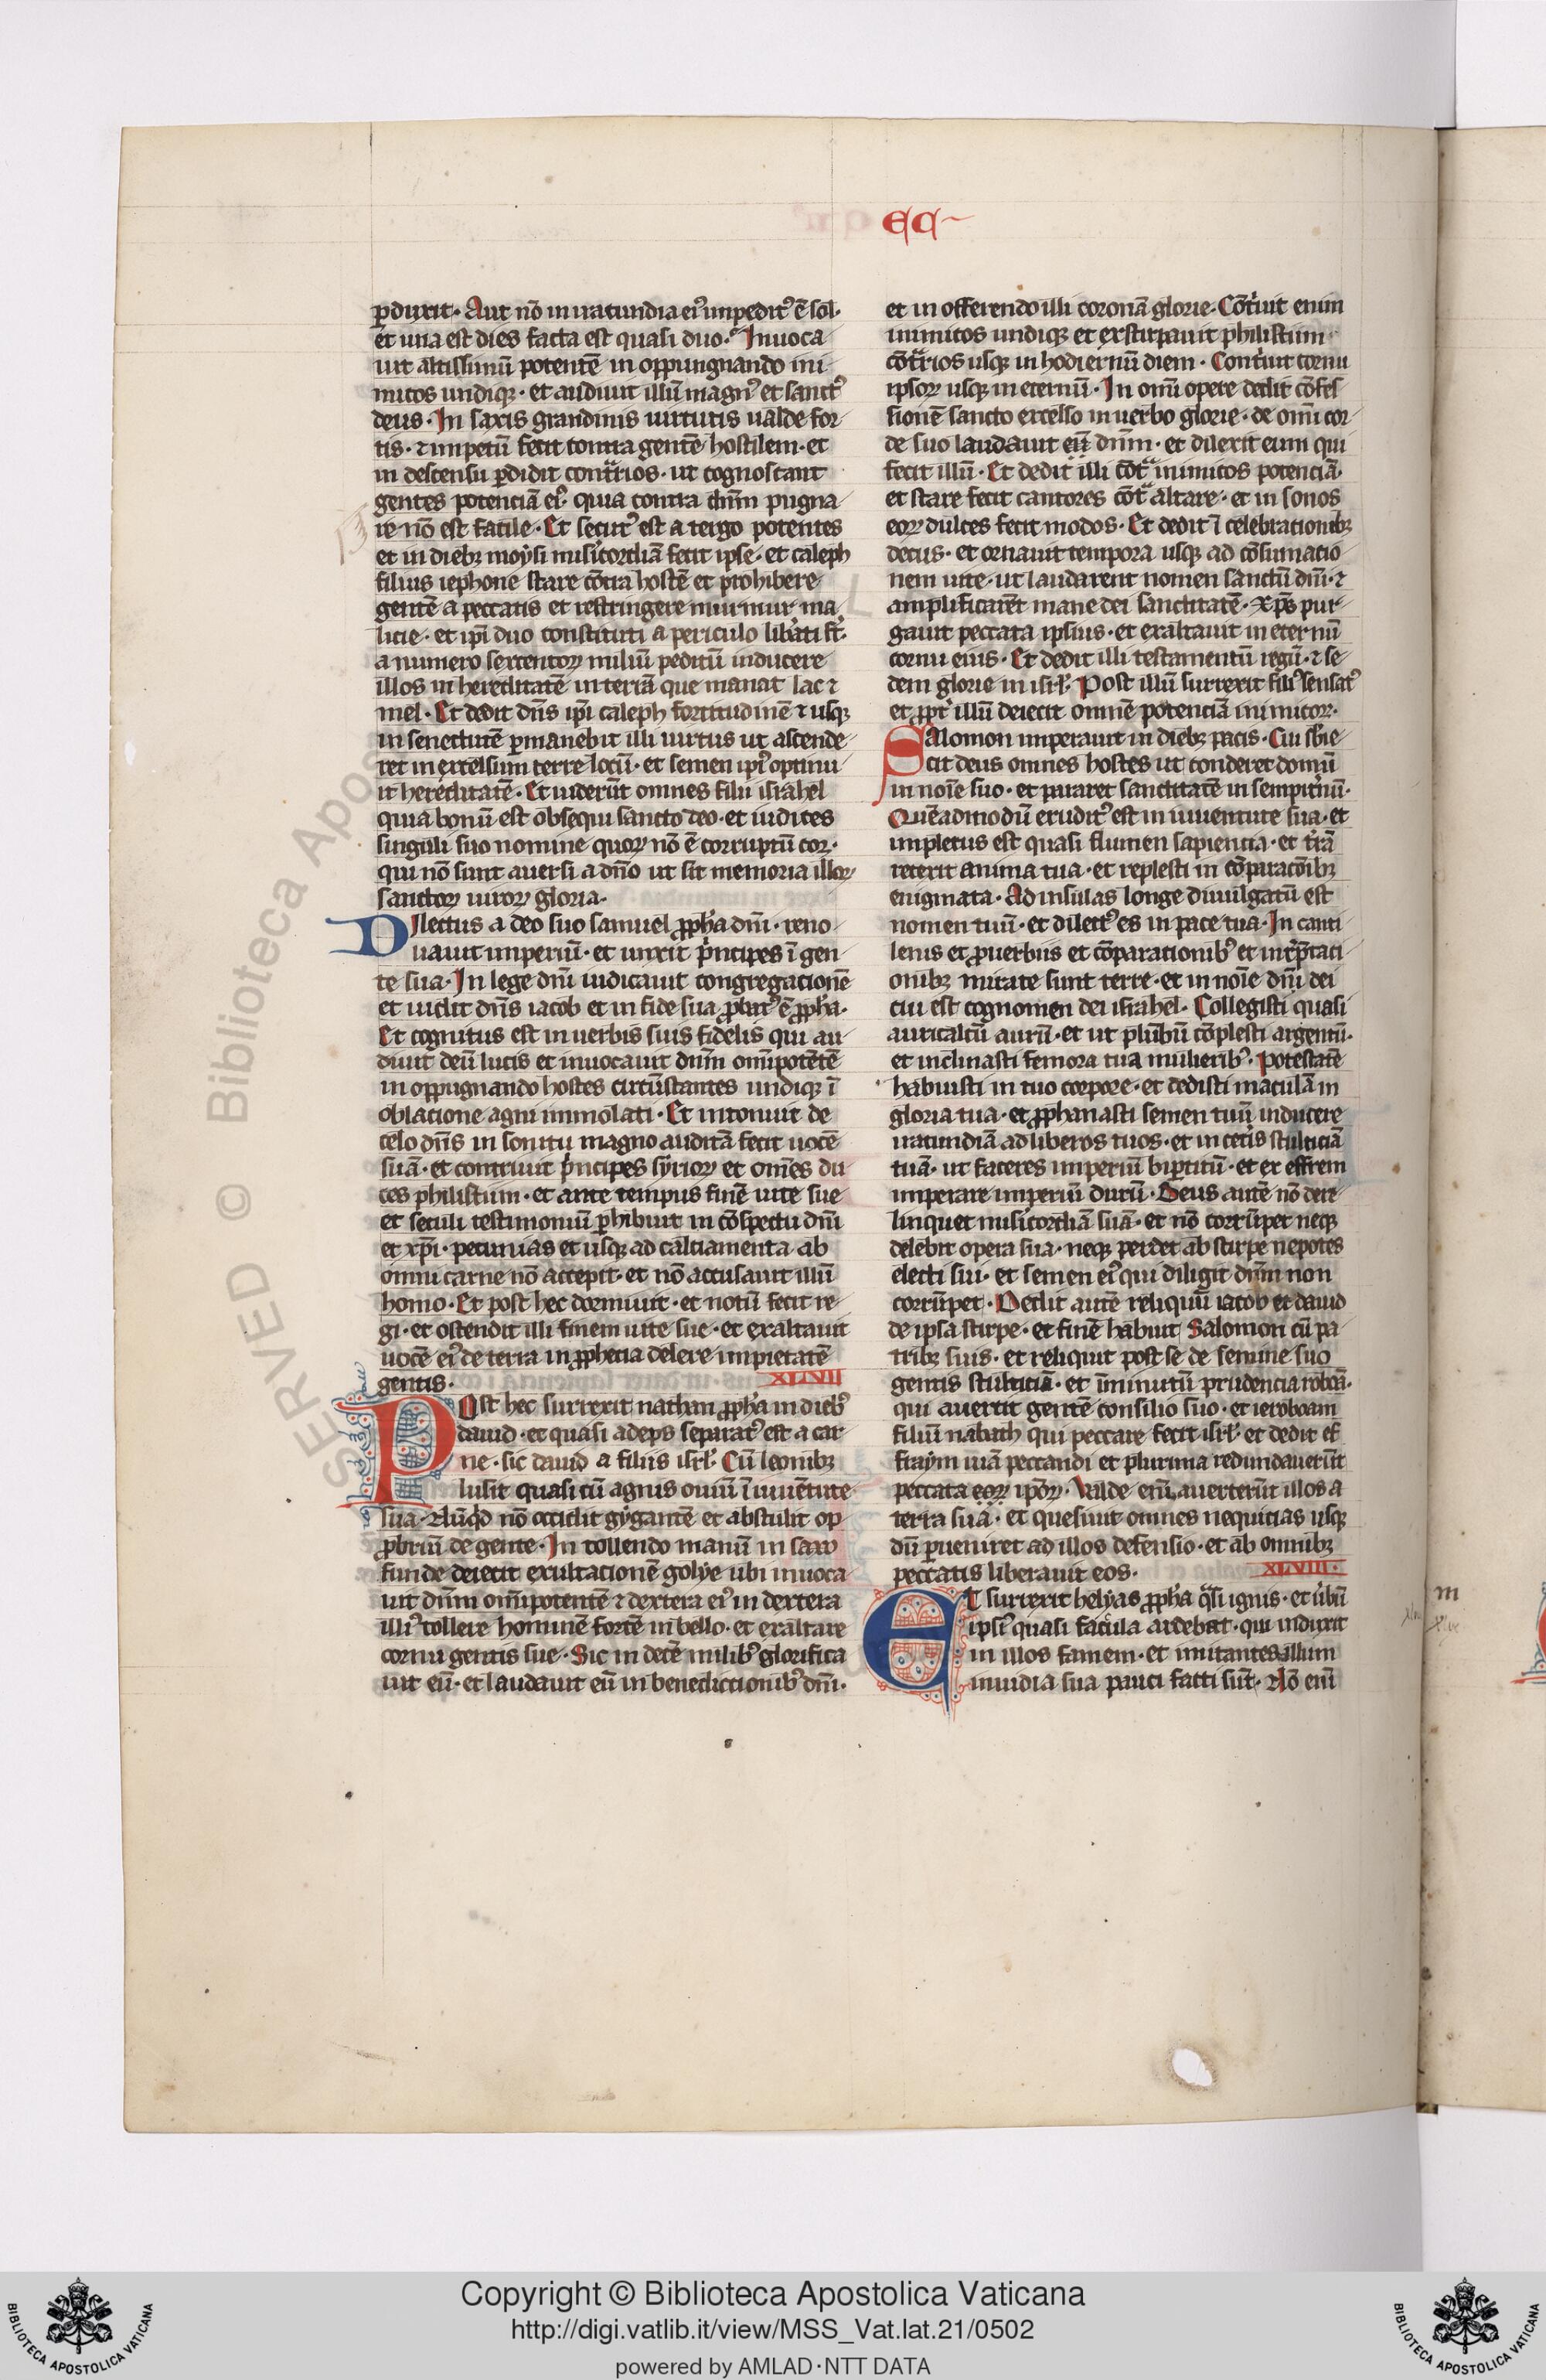 EC
ꝑduxit· Aut nõ in iracundia eiꝰ impeditꝰ ẽ sol·
et una est dies facta est quasi duo· Inuoca
uit altissimũ potentẽ in oppungnando ini
micos undiqꝫ· et audiuit illũ magnꝰ et sanctꝰ
deus· In saxis grandinis uirtutis ualde for
tis· ⁊ impetũ fecit contra gentẽ hostilem· et
in descensu ꝑdidit cont̾rios· ut cognoscant
gentes potenciã eiꝰ· quia contra dn̄m pugna
re nõ est facile· Et secutꝰ est a tergo potentes
et in diebꝫ moysi mis̾icordiã fecit ipse· et caleph
filius iephone stare cõtra hostẽ et prohibere
gentẽ a peccatis et restringere murmur ma
licie· et ip̄i duo constituti a periculo lib̾ati st̄·
a numero sexcentoꝝ miliũ peditũ inducere
illos in hereditatẽ in terrã que manat lac ⁊
mel· Et dedit dn̄s ip̄i caleph fortitudinẽ ⁊ usqꝫ
in senectutẽ ꝑmanebit illi uirtus ut ascende
ret in excelsum terre locũ· et semen ip̄iꝰ optinu
it hereditatẽ· Et uiderũt omnes filii israhel
quia bonũ est obsequi sancto deo· et iudices
singuli suo nomine quoꝝ nõ ẽ corruptũ cor·
qui nõ sunt auersi a dn̄o ut sit memoria illoꝝ
sanctoꝝ uiroꝝ gloria·
DIlectus a deo suo samuel ꝓph̄a dn̄i· reno
uauit imperiũ· et unxit p̾ncipes ĩ gen
te sua· In lege dn̄i iudicauit congregacionẽ
et uidit dn̄s iacob et in fide sua ꝓbatꝰ ẽ ꝓph̄a·
Et cognitus est in uerbis suis fidelis qui au
diuit deũ lucis et inuocauit dn̄m omĩpotẽtẽ
in oppugnando hostes circũstantes undiqꝫ ĩ
oblacione agni immolati· Et intonuit de
celo dn̄s in sonitu magno auditã fecit uocẽ
suã· et contriuit p̾ncipes syrioꝝ et om̄es du
ces philistiim· et ante tempus finẽ uite sue
et seculi testimoniũ ꝑhibuit in cõspectu dn̄i
et xp̄i· pecunias et usqꝫ ad calciamenta ab
omni carne nõ accepit· et nõ accusauit illũ
homo· Et post hec dormiuit· et notũ fecit re
gi· et ostendit illi finem uite sue· et exaltauit
uocẽ eiꝰ de terra in ꝓphecia delere impietatẽ
gentis· XLVII
POst hec surrexit nathan ꝓph̄a in diebꝰ
dauid· et quasi adeps separatꝰ est a car
ne· sic dauid a filiis isrl̄· Cũ leonibꝫ
lusit quasi cũ agnis ouiũ ĩ iuuẽtute
sua· Nũqͥd nõ occidit gygantẽ et abstulit op
ꝓbriũ de gente· In tollendo manũ in saxo
funde deiecit exultacionẽ golye ubi inuoca
uit dn̄m omĩpotentẽ ⁊ dextera eiꝰ in dextera
illiꝰ tollere hominẽ fortẽ in bello· et exaltare
cornu gentis sue· Sic in decẽ milibꝰ glorifica
uit eũ· et laudauit eũ in benedictionibꝰ dn̄i·
et in offerendo illi coronã glorie· Cõt̾uit enim
inimicos undiqꝫ et exstirpauit philistiim
cõt̾rios usqꝫ in hodiernũ diem· Cont̾uit cornu
ipsoꝝ usqꝫ in eternũ· In om̄i opere dedit cõfes
sionẽ sancto excelso in uerbo glorie· de om̄i cor
de suo laudauit eũ dn̄m· et dilexit eum qui
fecit illũ· Et dedit illi cõtͣ inimicos potenciã·
et stare fecit cantores cõtͣ altare· et in sonos
eoꝝ dulces fecit modos· Et dedit ĩ celebrationibꝫ
decus· et ornauit tempora usqꝫ ad cõsumatio
nem uite· ut laudarent nomen sanctũ dn̄i· ⁊
amplificarẽt mane dei sanctitatẽ· xp̄s pur
gauit peccata ipsius· et exaltauit in eternũ
cornu eius· Et dedit illi testamentũ regũ· ⁊ se
dem glorie in isrl̄· Post illũ surrexit filiꝰ sensatꝰ
et ꝓpt̾ illũ deiecit omnẽ potenciã inimicoꝝ·
SAlomon imperauit in diebꝫ pacis· Cui sb̾ie
cit deus omnes hostes ut conderet domũ
in noĩe suo· et pararet sanctitatẽ in sempit̾nũ·
Quẽadmodũ eruditꝰ est in iuuentute sua· et
impletus est quasi flumen sapiencia· et t̾rã
retexit anima tua· et replesti in cõparac̃oĩbꝫ
enigmata· Ad insulas longe diuulgatũ est
nomen tuũ· et dilectꝰ es in pace tua· In canti
lenis et ꝓuerbiis et cõparationibꝰ et int̾p̾taci
onibꝫ mirate sunt terre· et in noĩe dn̄i dei
cui est cognomen dei israhel· Collegisti quasi
auricalcũ aurũ· et ut plũbũ cõplesti argentũ·
et inclinasti femora tua mulieribꝰ· potestatẽ
habuisti in tuo corpore· et dedisti maculã in
gloria tua· et ꝓphanasti semen tuũ inducere
iracundiã ad liberos tuos· et in cet̾is stulticiã
tuã· ut faceres imperiũ biꝑtitũ· et ex effrem
imperare imperiũ durũ· Deus autẽ nõ dere
linquet mis̾icordiã suã· et nõ corrũpet neqꝫ
delebit opera sua· neqꝫ perdet ab stirpe nepotes
electi sui· et semen eiꝰ qui diligit dn̄m non
corrũpet· Dedit autẽ reliquũ iacob et dauid
de ipsa stirpe· et finẽ habuit Salomon cũ pa
tribꝫ suis· et reliquit post se de semine suo
gentis stulticiã· et ĩminutũ prudencia roboã·
qui auertit gentẽ consilio suo· et ieroboam
filiũ nabath qui peccare fecit isrl̄· et dedit ef
fraym uiã peccandi et plurima redundauerũt
peccata eoꝝ ip̄oꝝ· Valde eni᷑ auerterũt illos a
terra sua· et quesiuit omnes nequicias usqꝫ
dũ ꝑueniret ad illos defensio· et ab omnibꝫ
peccatis liberauit eos· XLVIII·
ET surrexit helyas ꝓph̄a qͣsi ignis· et u̾bũ
ipsiꝰ quasi facula ardebat· qui induxit
in illos famem· et imitantes illum
inuidia sua pauci facti sũt· Nõ enĩ
Copyright © Biblioteca Apostolica Vaticana
http://digi.vatlib.it/view/MSS_Vat.lat.21/0502
powered by AMLAD·NTT DATA
BIBLIOTECA APOSTOLICA VATICANA
BIBLIOTECA APOSTOLICA VATICANA